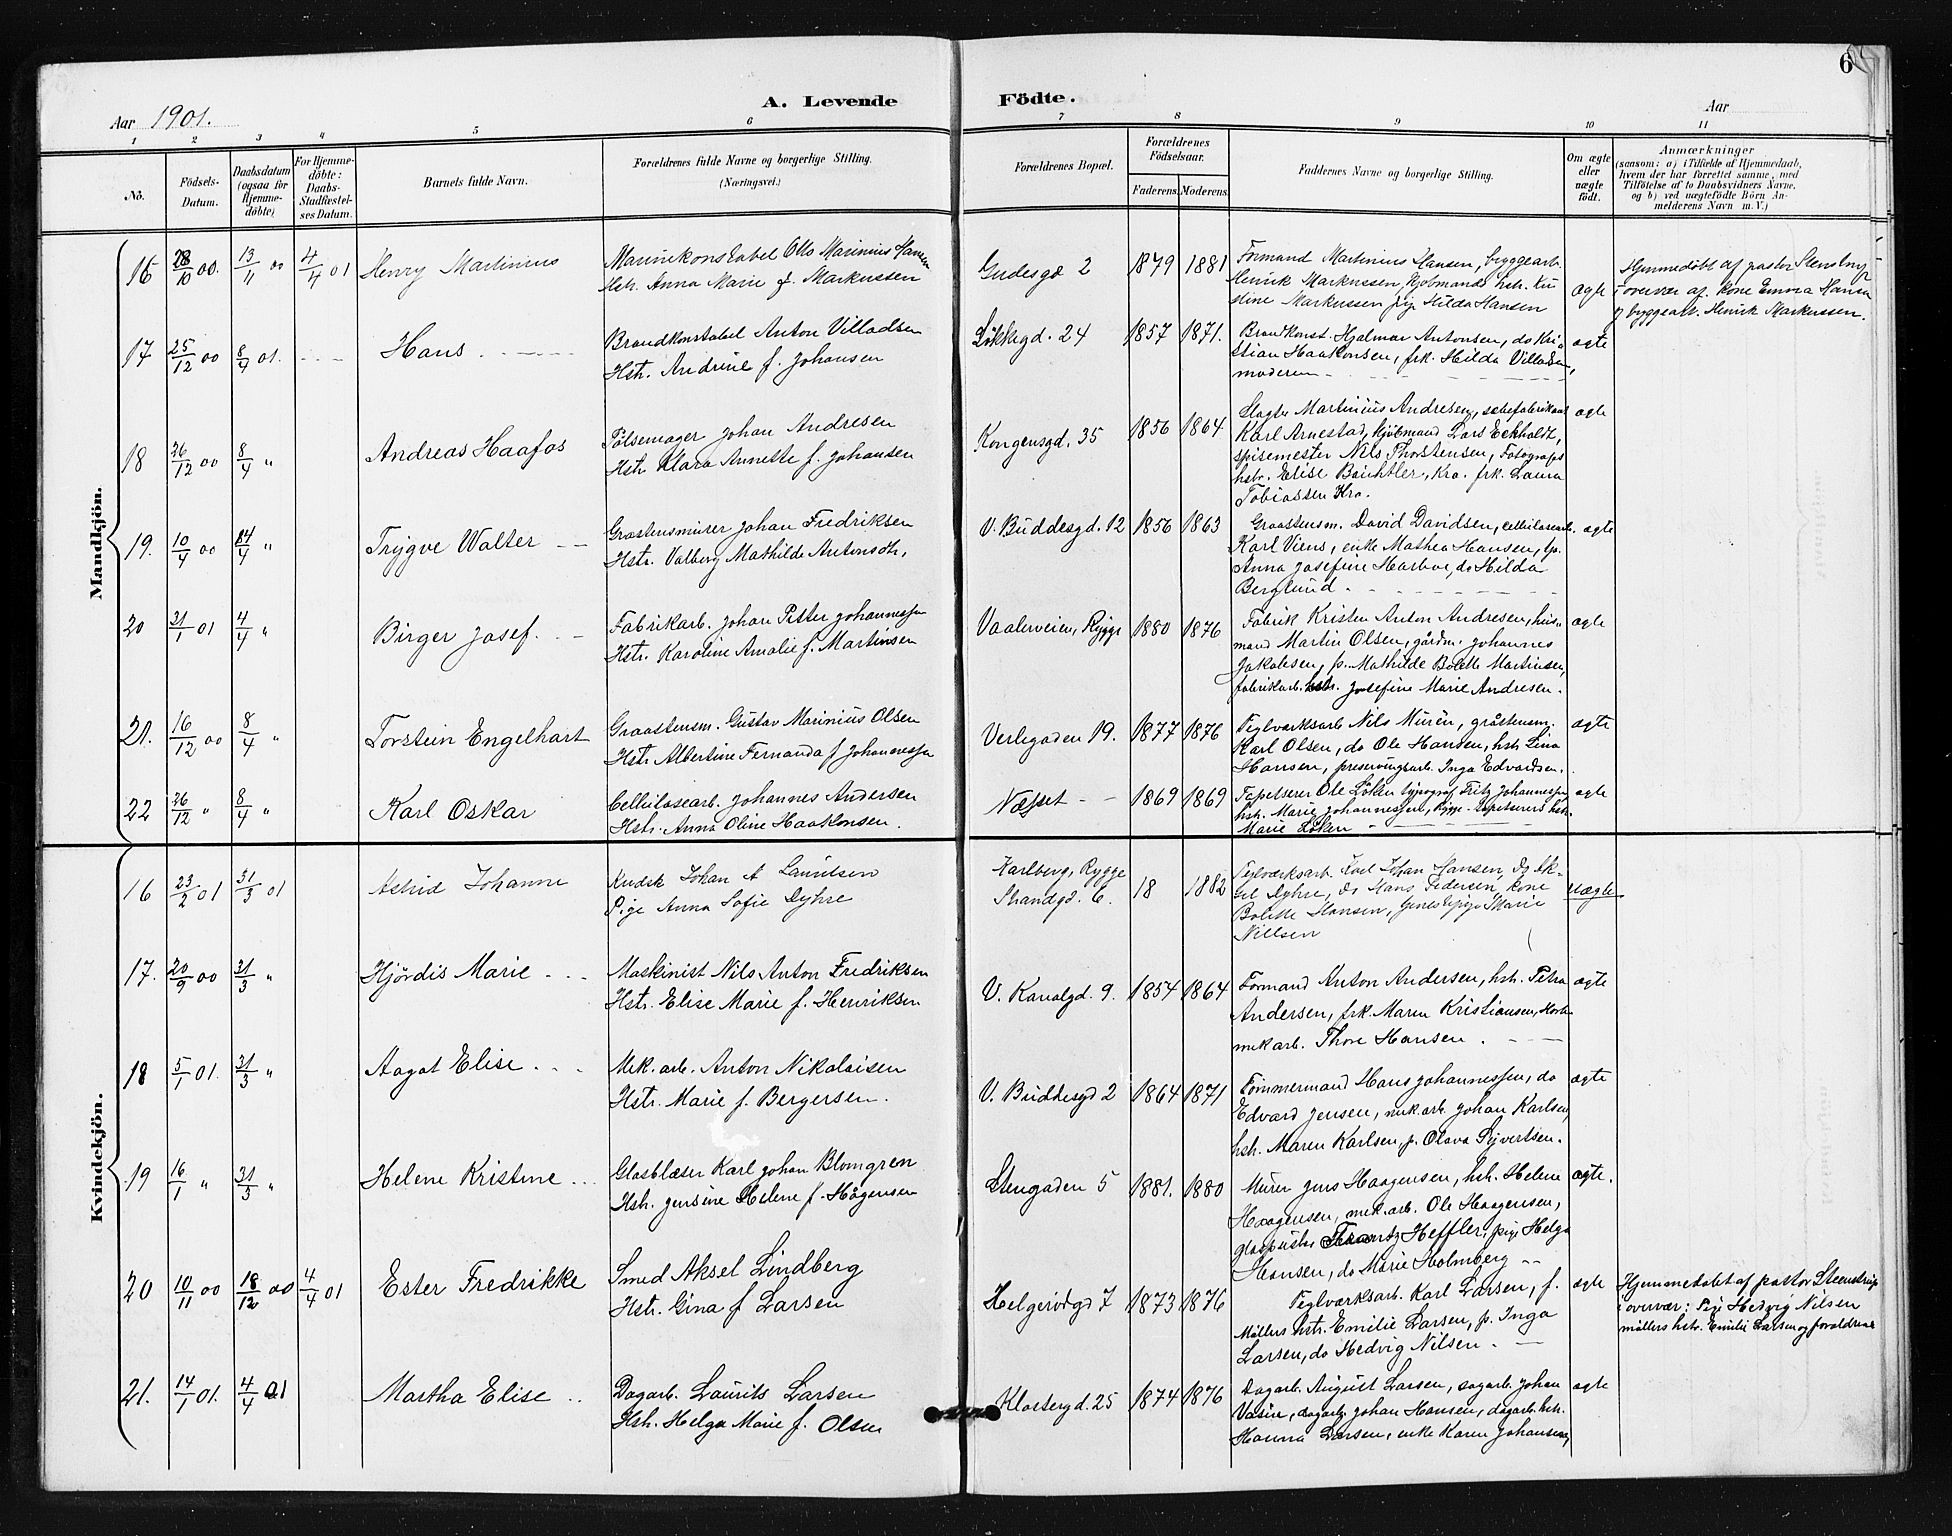 6
A. Levende Födte.
Aar 1901.
Aar
1 2 3 4 5 6 7 8 9 10 11
No.
Födsels-Datum.
Daabsdatum (ogsaa for Hjemme-döbte)
For Hjemme-döbte: Daabs-Stadfæstel-ses Datum.
Barnets fulde Navn.
Forældrenes fulde Navne og borgerlige Stilling.
(Næringsvei.)
Forældrenes Bopæl.
Forældrenes Födselsaar.
Faderens. Moderens.
Faddernes Navne og borgerlige Stilling.
Om ægte eller uægte födt.
Anmærkninger
(saasom: a) i Tilfælde af Hjemmedaab,
hvem der har forrettet samme, med
Tilföielse af to Daabsvidners Navne,
og b) ved uægtefödte Börn An-
melderens Navn m. V.)
Mandkjön.
16 28/10 00. 13/11 00 4/4 01 Henry Martinius
Marinekonstabel Otto Marinius Hansen
Hstr. Anna Marie f. Markussen
Gudesgd 2 1879 1881
Formand Martinius Hansen, bryggearb.
Henrik Markussen, kjöbmands hstr. Kri
stine Markussen pige Hilda Hansen
ægte
Hjemmedöbt af pastor Stenstrup
i overvær af: kone Emma Hansen
og byggearb. Henrik Markussen.
17 25/12 00 8/4 01. Hans
Brandkonstabel Anton Villadsen
Hstr. Andrine f. Johansen
Lökkegd. 24 1857 1871.
Brandkonst. Hjalmar Antonsen, do Kri-
stian Haakonsen, frk. Hilda Villadsen,
moderen
ægte
18 26/12 00 8/4 " Andreas Haafos
Pölsemager Johan Andresen
Hstr. Klara Annette f. Johansen
Kongensgd. 35 1856 1864
Slagter Martinius Andresen, sæbefabrikant
Karl Arnestad, kjöbmand Lars Eckholdt,
spisemester Nils Thorstensen, Fotografs
hstr. Elise Büchtler, Kra. frk. Laura
Tobiassen Kra.
ægte
19. 10/4 00 4/4 " Trygve Walter
Graastensmurer Johan Fredriksen
Hstr. Valborg Mathilde Antonsdtr.
V. Buddesgd. 12 1856 1863
Graastensm. David Davidsen, cellulosearb.
Karl Viens, enke Mathea Hansen, p.
Anna Josefine Harboe, do Hilda
Berglund
ægte
20 31/1 01 4/4 " Birger Josef.
Fabrikarb. Johan Petter Johannessen
Hstr. Karoline Amalie f. Martinsen
Vaalerveien, Rygge 1880 1876
Fabrik Kristen Anton Andresen, hus-
mand Martin Olsen, gårdm. Johannes
Jakobsen, p. Mathilde Bolette Martinsen,
fabrikarb. hstr. Josefine Marie Andresen.
ægte
21. 16/12 00 8/4 " Torstein Engelhart
Graastensm. Gustav Marinius Olsen
Hstr. Albertine Fernanda f. Johannessen
Verlegaden 19. 1877 1876
Teglværksarb Nils Murén, gråstensm.
Karl Olsen, do Ole Hansen, hstr. Lina
Hansen, preserveingsarb. Inga Edvardsen.
ægte
22 26/12 " 8/4 " Karl Oskar
Cellulosearb. Johannes Andersen
Hstr. Anna Oline Haakonsen.
Næsset 1869 1869
Tapetserer Ole Löken typograf Fritz Johannessen
hstr. Marie Johannessen, Rygge. Tapetserers hstr.
Marie Löken
ægte
Kvindekjön.
16 23/2 01 31/3 01 Astrid Johanne
Kudsk Johan A Lauritsen
Pige Anna Sofie Dyhre
Karlberg, Rygge
Strandgd. 6. 18 1882
Teglværksarb. Karl Johan Hansen, do Ak-
sel Dyhre, do Hans Pedersen, kone
Bolette Hansen, tjenestepige Marie
Nilsen
uægte
17. 20/9 00 31/3 " Hjördis Marie
Maskinist Nils Anton Fredriksen
Hstr. Elise Marie f. Henriksen
V. Kanalgd. 9. 1854 1864
Formand Anton Andersen, hstr. Petra
Andersen, frk. Maren Kristiansen, Horten
mek arb. Thore Hansen.
ægte
18 5/1 01. 31/3 " Aagot Elise
Mek. arb. Anton Nikolaisen
Hstr. Marie f. Bergersen.
V. Buddesgd 2 1864 1871
Tömmermand Hans Johannessen, do
Edvard Jensen, mek. arb. Johan Karlsen,
hstr. Maren Karlsen, p. Olava Syvertsen.
ægte
19 16/1 " 31/3 " Helene Kristine
Glasblæser Karl Johan Blomgren
Hstr. Jensine Helene f. Hågensen
Stengaden 5 1881. 1880
Murer Jens Haagensen, hstr. Helene
Haagensen, mek. arb. Ole Haagensen,
glaspuster Frantz Heffler, pige Helga
Hansen, do Marie Holmberg
ægte.
20 10/11 00 18/12 00 4/4 01 Ester Fredrikke
Smed Aksel Lindberg
Hstr. Gina f. Larsen
Helgerödgd 7 1873 1876
Teglværksarb. Karl Larsen, f.
Möllers hstr. Emilie Larsen, p. Inga
Larsen, do Hedvig Nilsen.
ægte
Hjemmedöbt af pastor Steenstrup
i overvær: Pige Hedvig Nilsen
möllers hstr. Emilie Larsen og forældrene
21. 14/1 01. 4/4 01 Martha Elise
Dagarb. Laurits Larsen
Hstr. Helga Marie f. Olsen
Klostergd. 25 1874 1876
Dagarb. August Larsen, sagarb. Johan
dagarb. Johan Hansen, dagarb. hstr.
Hanna Larsen, enke Karen Johansen,
ægte